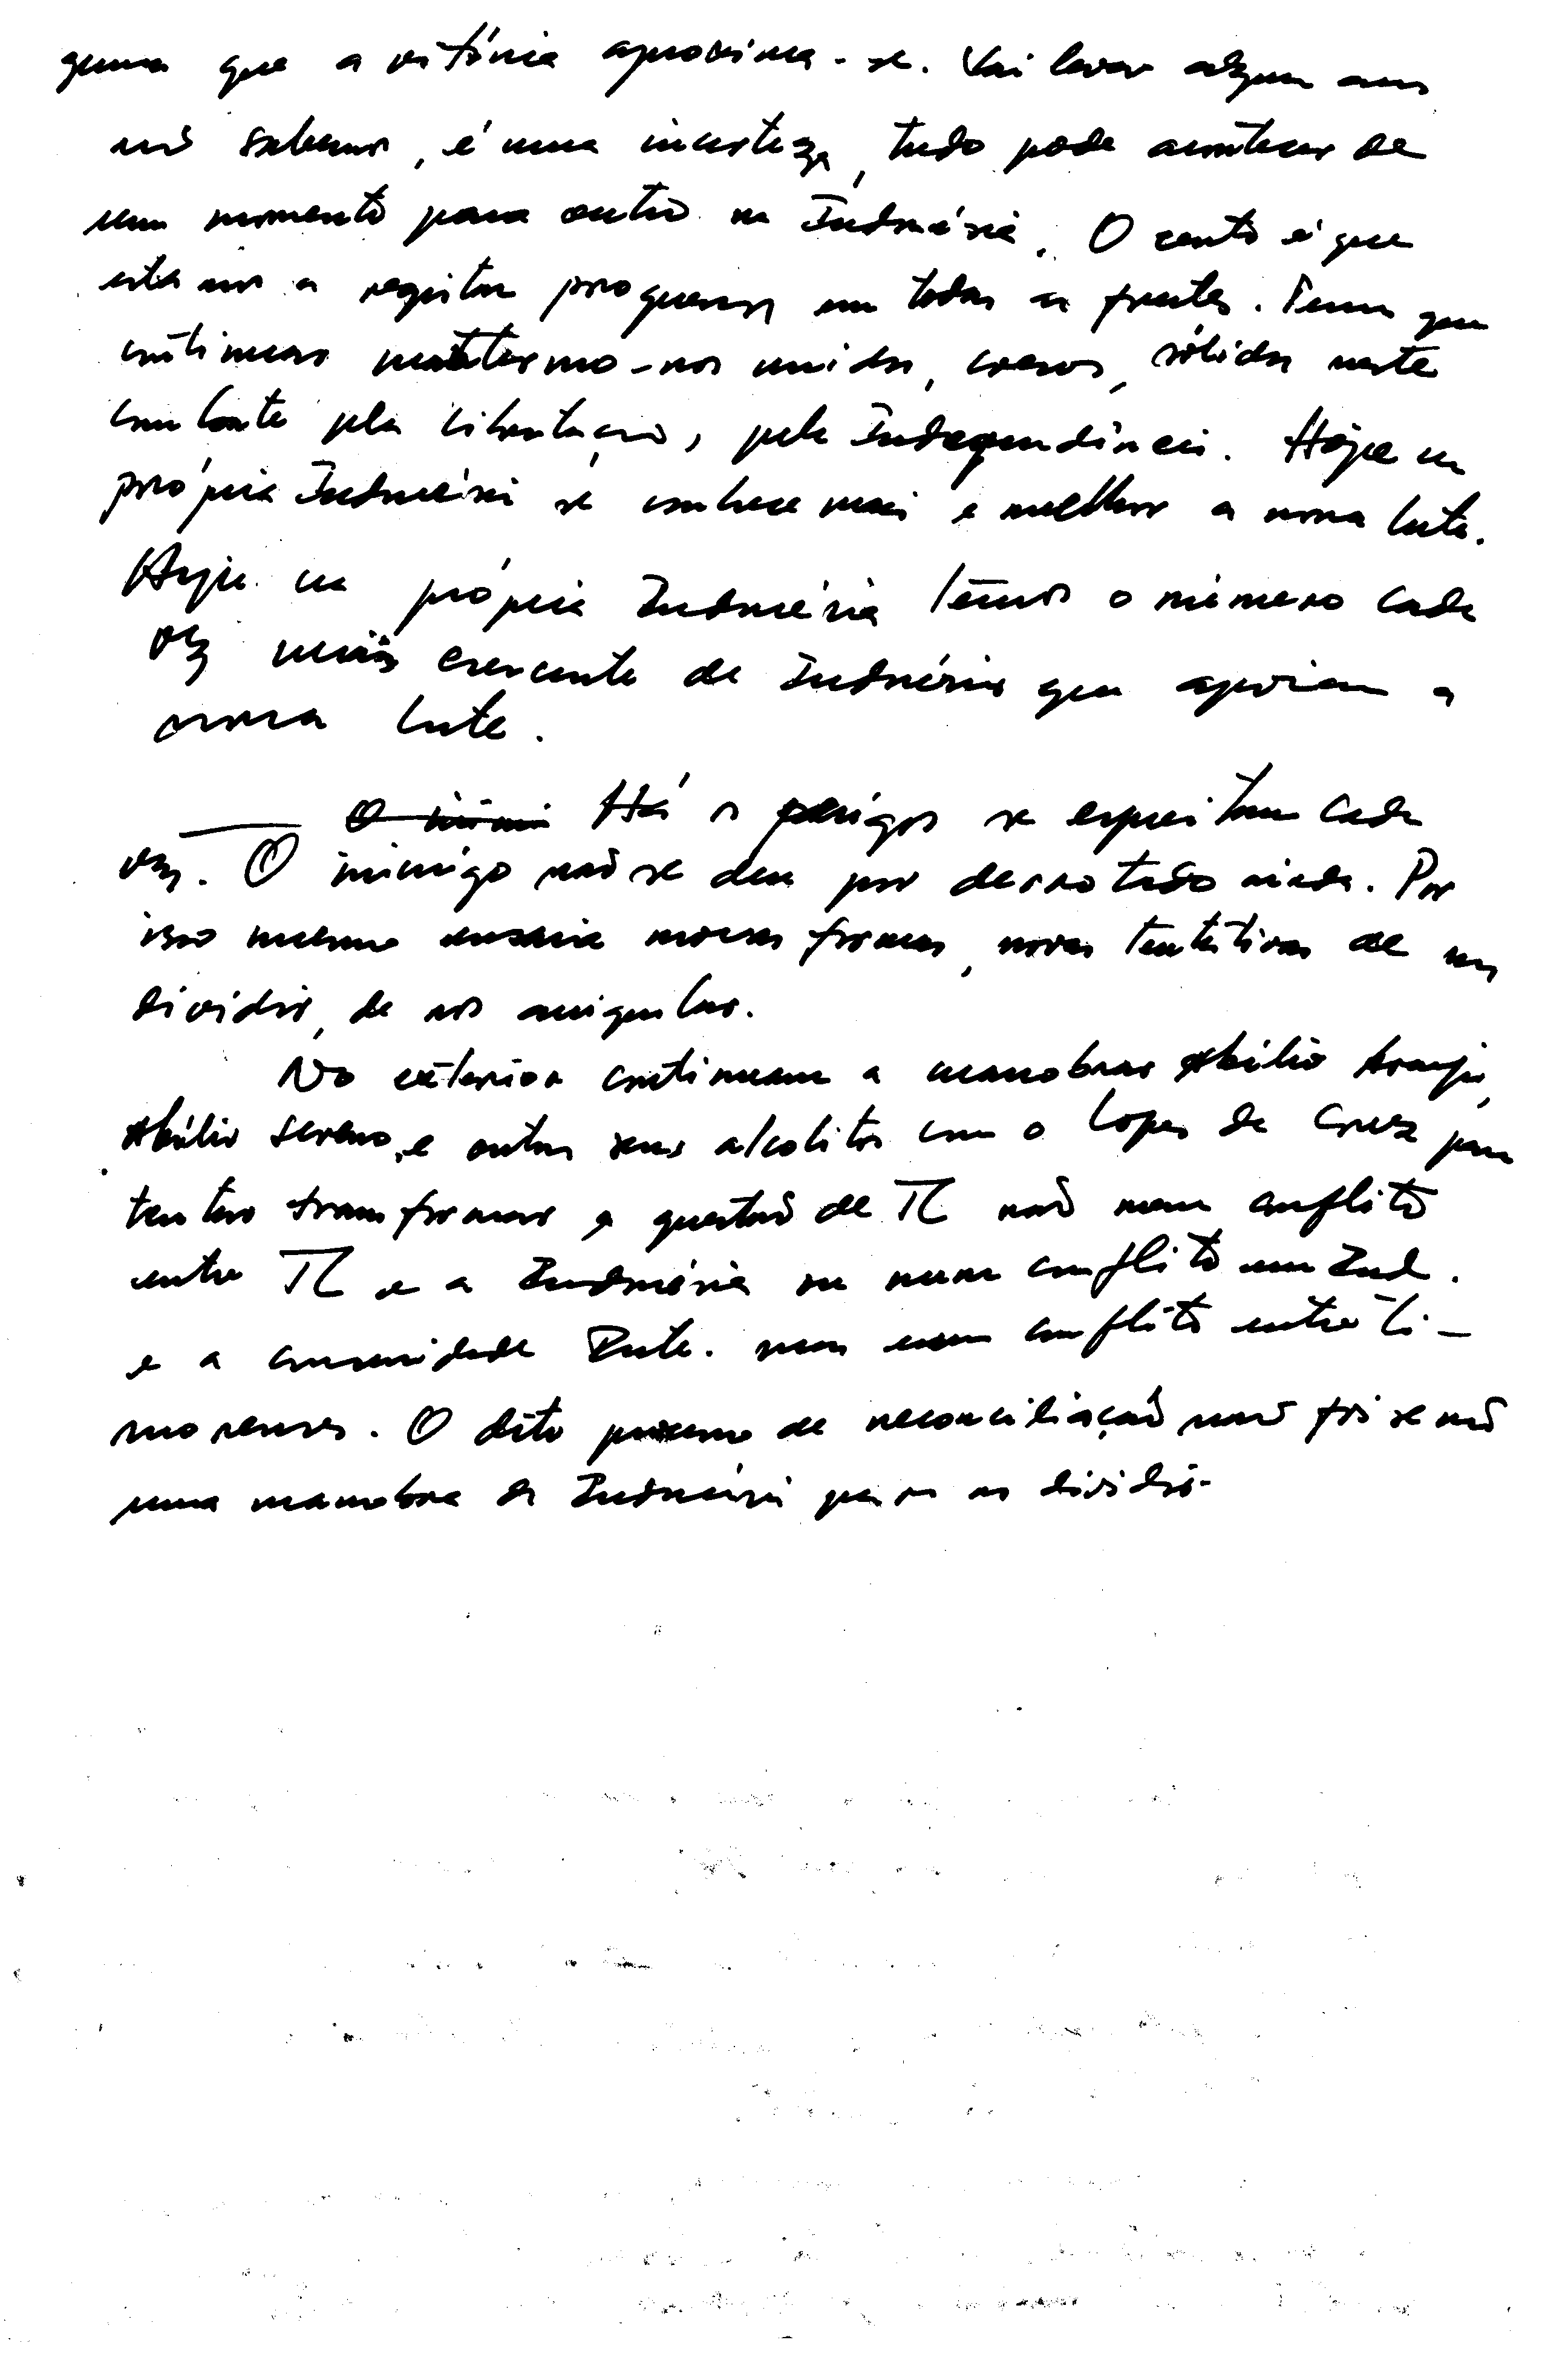 guma que a vitória aproxima-se. Vai levar algum
não sabemos, é uma incerteza, tudo pode acontecer de
um momento para outro na Indonésia. O certo é que
estamos a registar progressos em todas as frentes. Temos que
continuar unidos, coesos, sólidos neste
combate pela libertação, pela Independência. Hoje na
própria Indonésia se conhece mais e melhor a nossa luta.
Hoje na própria Indonésia temos o número cada
vez mais crescente de Indonésios que apoiam a
nossa luta.
Há os perigos se espreitam cada
vez. O inimigo não se deu por derrotado ainda. Por
isso mesmo ensaia novas formas, novas tentativas de nos
dividir, de nos aniquilar.
No exterior continuam a manobrar Abílio Araujo,
Abílio Sereno, e outros seus alcolitos com o Lopes da Cruz para
tentar transformar a questão de TL não num conflito
entre TL e a Indonésia ou num conflito com Ind.
e a comunidade Inte. mas num conflito entre ti-
morenses. O dito processo de reconciliação não foi senão
uma manobra da Indonésia para nos dividir.